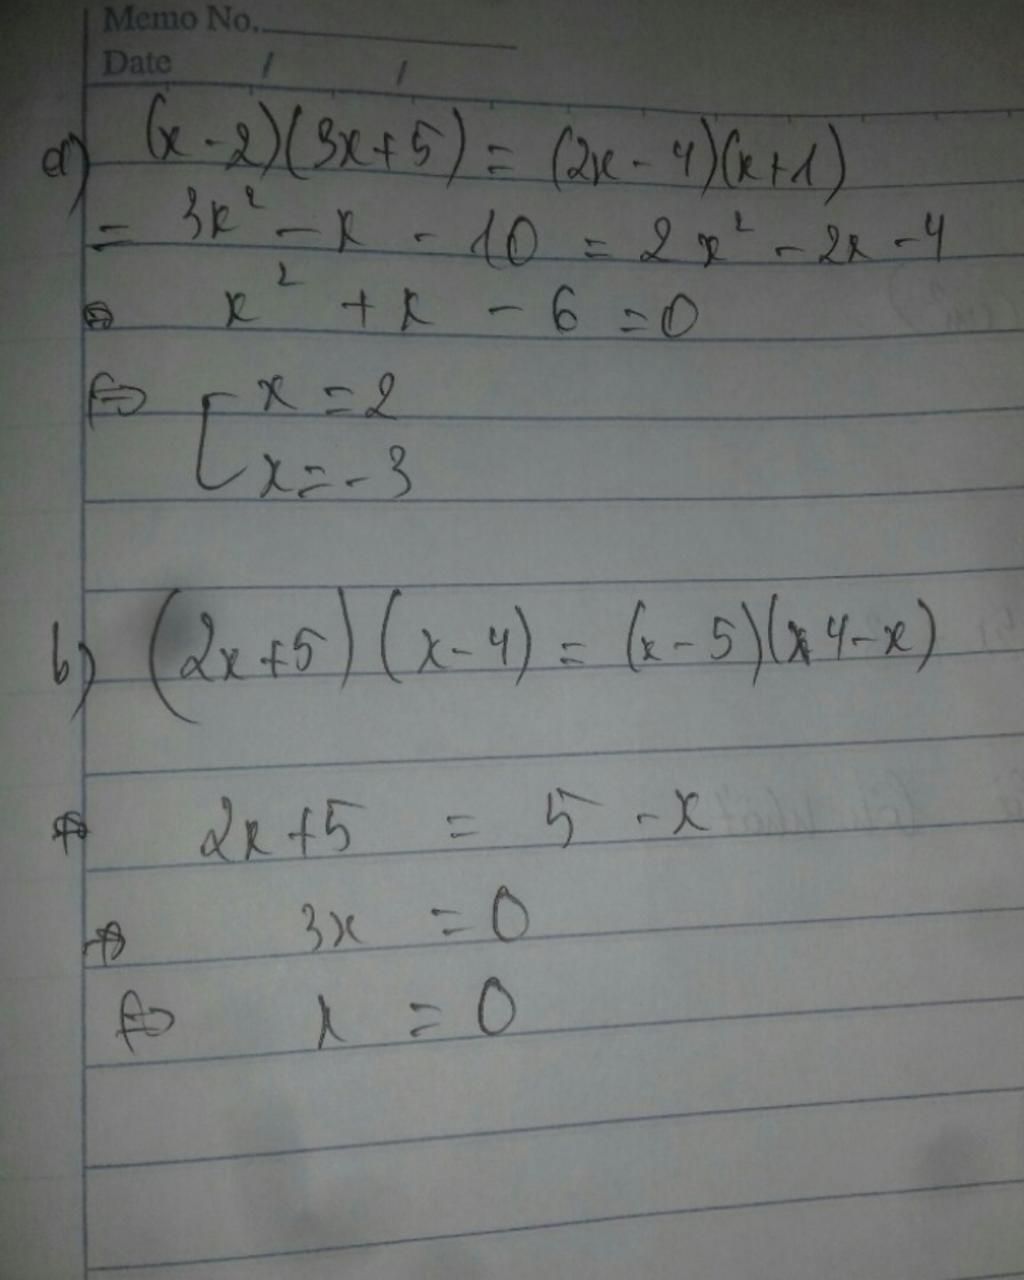 Memo No.
Date / /
a) (x - 2)(3x + 5) = (2x - 4)(x + 1)
= 3x² - x - 10 = 2x² - 2x - 4
⇔ x² + x - 6 = 0
⇔ [ x = 2
x = -3
b) (2x + 5)(x - 4) = (x - 5)(4 - x)
⇔ 2x + 5 = 5 - x
⇔ 3x = 0
⇔ x = 0